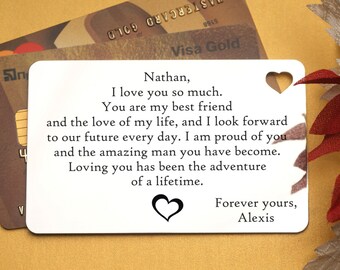 GOLD
Visa Gold
Nathan,
I love you so much.
You are my best friend
and the love of my life, and I look forward
to our future every day. I am proud of you
and the amazing man you have become.
Loving you has been the adventure
of a lifetime.
Forever yours,
Alexis